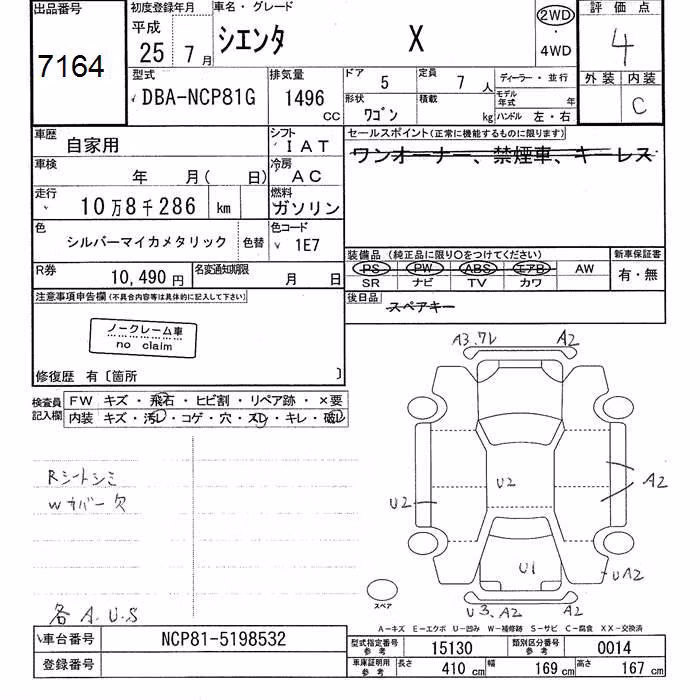 出品番号
7164
初度登録年月
平成
25 年 7 月
車名・グレード
シエンタ X
2WD
・
4WD
評価点
4
外装 内装
C
型式
DBA-NCP81G
排気量
1496 CC
ドア 5
定員 7 人
ディーラー・並行
モデル年式 年
形状 ワゴン
積載 kg
ハンドル 左・右
車歴 自家用
シフト IAT
車検 年 月( 日)
冷房 AC
走行 10万8千286 km
燃料 ガソリン
色 シルバーマイカメタリック 色替
色コード 1E7
R券 10,490 円
名変通知期限 月 日
セールスポイント(正常に機能するものに限ります)
ワンオーナー、禁煙車、キーレス
装備品 (純正品に限り○をつけてください)
PS PW ABS エアB AW
SR ナビ TV カワ
新車保証書
有・無
後日品 スペアキー
注意事項申告欄(不具合内容等は具体的に記入して下さい)
ノークレーム車
no claim
修復歴 有〔箇所 〕
検査員記入欄
FW キズ・飛石・ヒビ割・リペア跡・×要
内装 キズ・汚レ・コゲ・穴・スレ・キレ・破レ
Rシートシミ
Wカバー欠
各A.U.S
A3.ワレ A2
U2
U2
A2
U1
UA2
U3.A2 A2
スペア
A-キズ E-エクボ U-凹み W-補修跡 S-サビ C-腐食 XX-交換済
車台番号 NCP81-5198532
登録番号
型式指定番号 参考 15130
類別区分番号 参考 0014
車庫証明用 参考 長さ 410 cm 幅 169 cm 高さ 167 cm